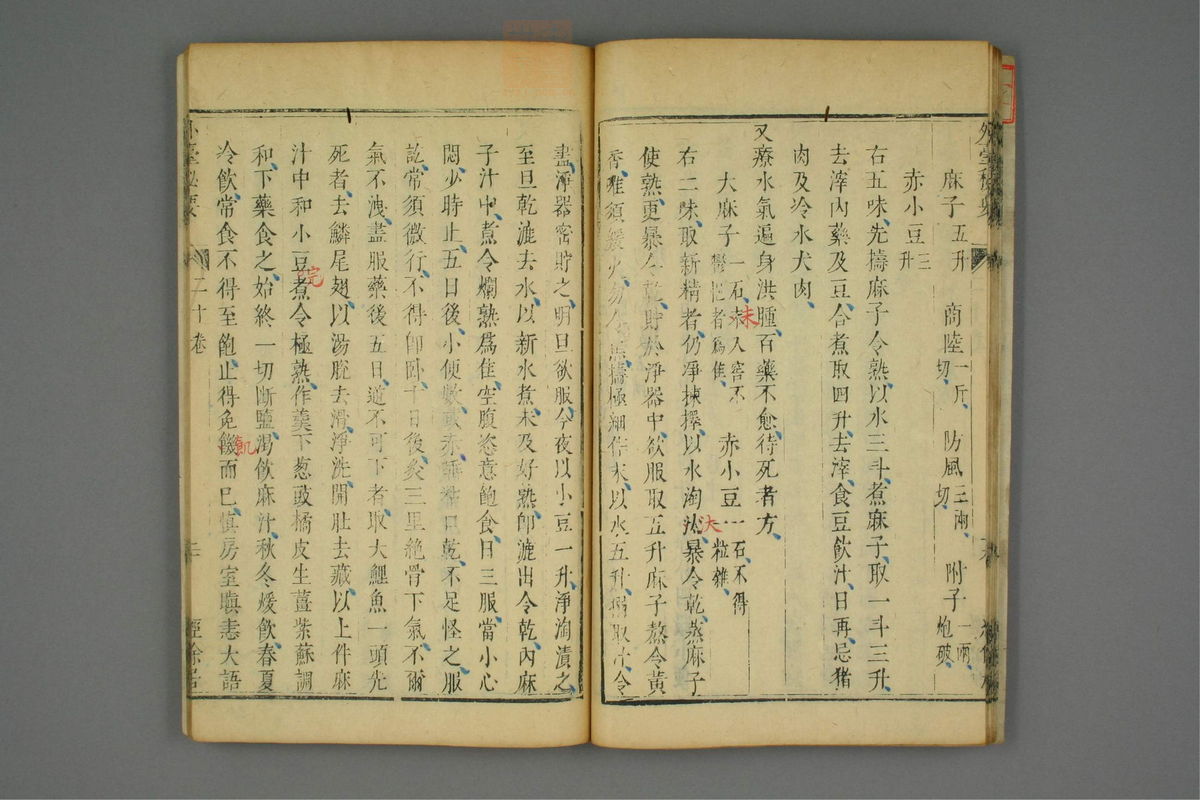 麻子五升 商陸一斤切 防風三兩切 附子一兩炮破
赤小豆三升
右五味先擣麻子令熟以水三斗煮麻子取一斗三升
去滓內藥及豆合煮取四升去滓食豆飲汁日再忌猪
肉及冷水犬肉
又療水氣遍身洪腫百藥不愈待死者方
大麻子一石未入窖不鬱悒者爲佳 赤小豆一石不得一粒雜
右二味取新精者仍淨揀擇以水淘汰暴令乾蒸麻子
使熟更暴令乾貯於淨器中欲服取五升麻子熬令黃
香惟須緩火勿令焦擣極細作末以水五升搦取汁令
盡淨器密貯之明旦欲服今夜以小豆一升淨淘漬之
至旦乾漉去水以新水煮未及好熟卽漉出令乾內麻
子汁中煮令爛熟爲佳空腹恣意飽食日三服當小心
悶少時止五日後小便數或赤唾粘口乾不足怪之服
訖常須微行不得卽卧十日後灸三里絕骨下氣不爾
氣不洩盡服藥後五日逆不可下者取大鯉魚一頭先
死者去鱗尾翅以湯脫去滑淨洗開肚去藏以上件麻
汁中和小豆煮令極熟作羹下葱豉橘皮生薑紫蘇調
和下藥食之始終一切斷鹽渴飲麻汁秋冬煖飲春夏
冷飲常食不得至飽止得免饑而已慎房室嗔恚大語
外臺秘要 二十卷 經餘居
末
汰
完
飢